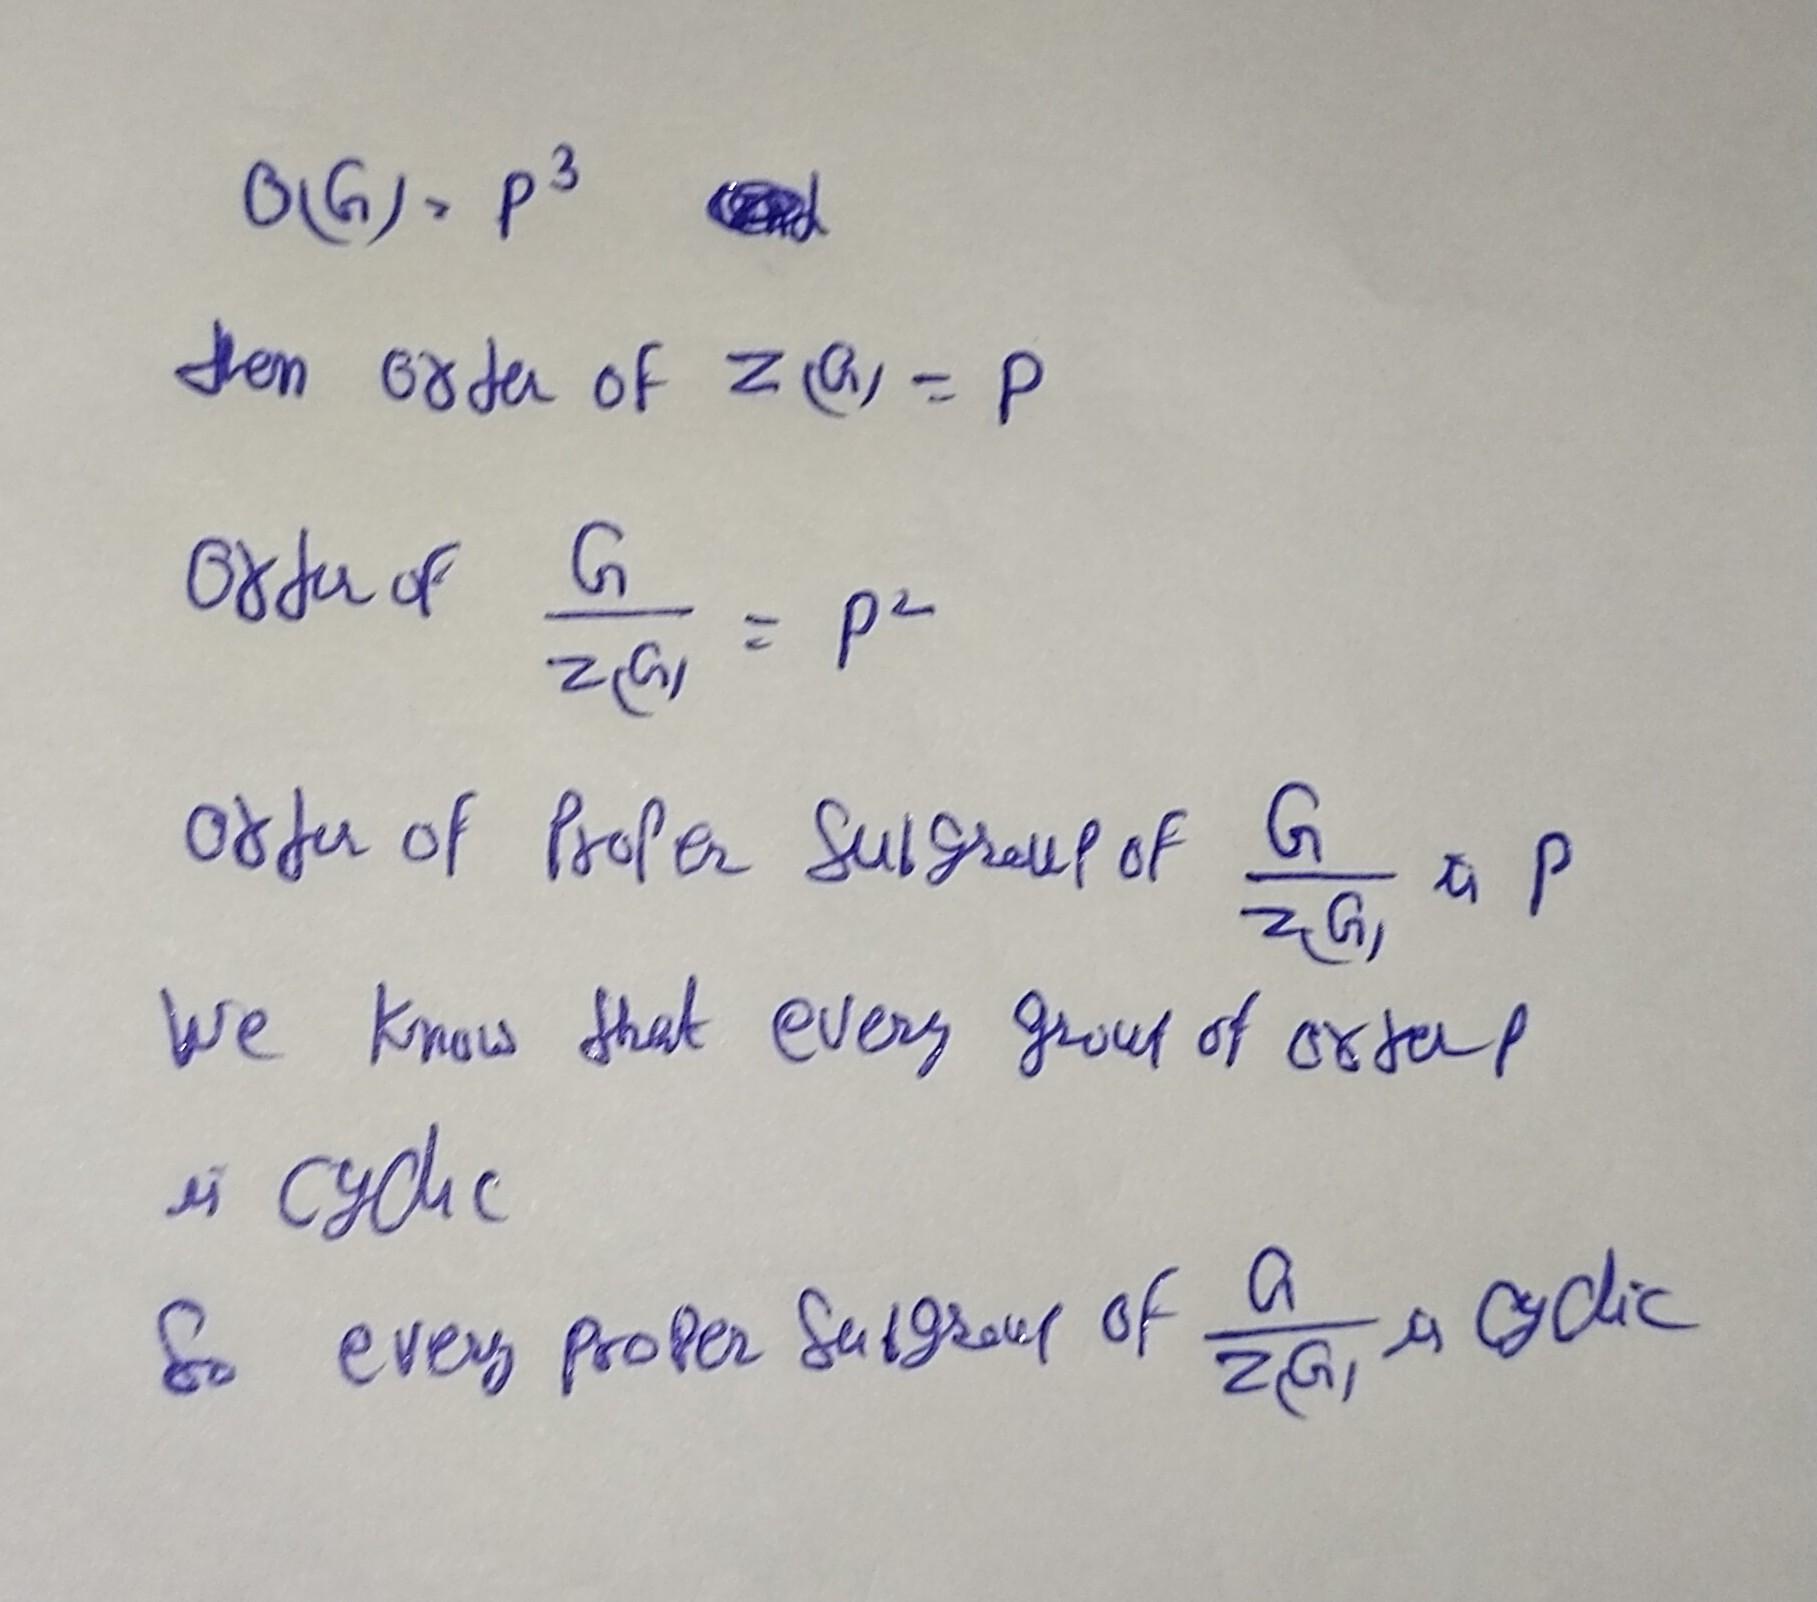 O(G) = p³
then order of Z(G) = p
Order of G/Z(G) = p²
order of Proper Subgroup of G/Z(G) is p
We know that every group of order p
is cyclic
So every proper Subgroup of G/Z(G) is cyclic